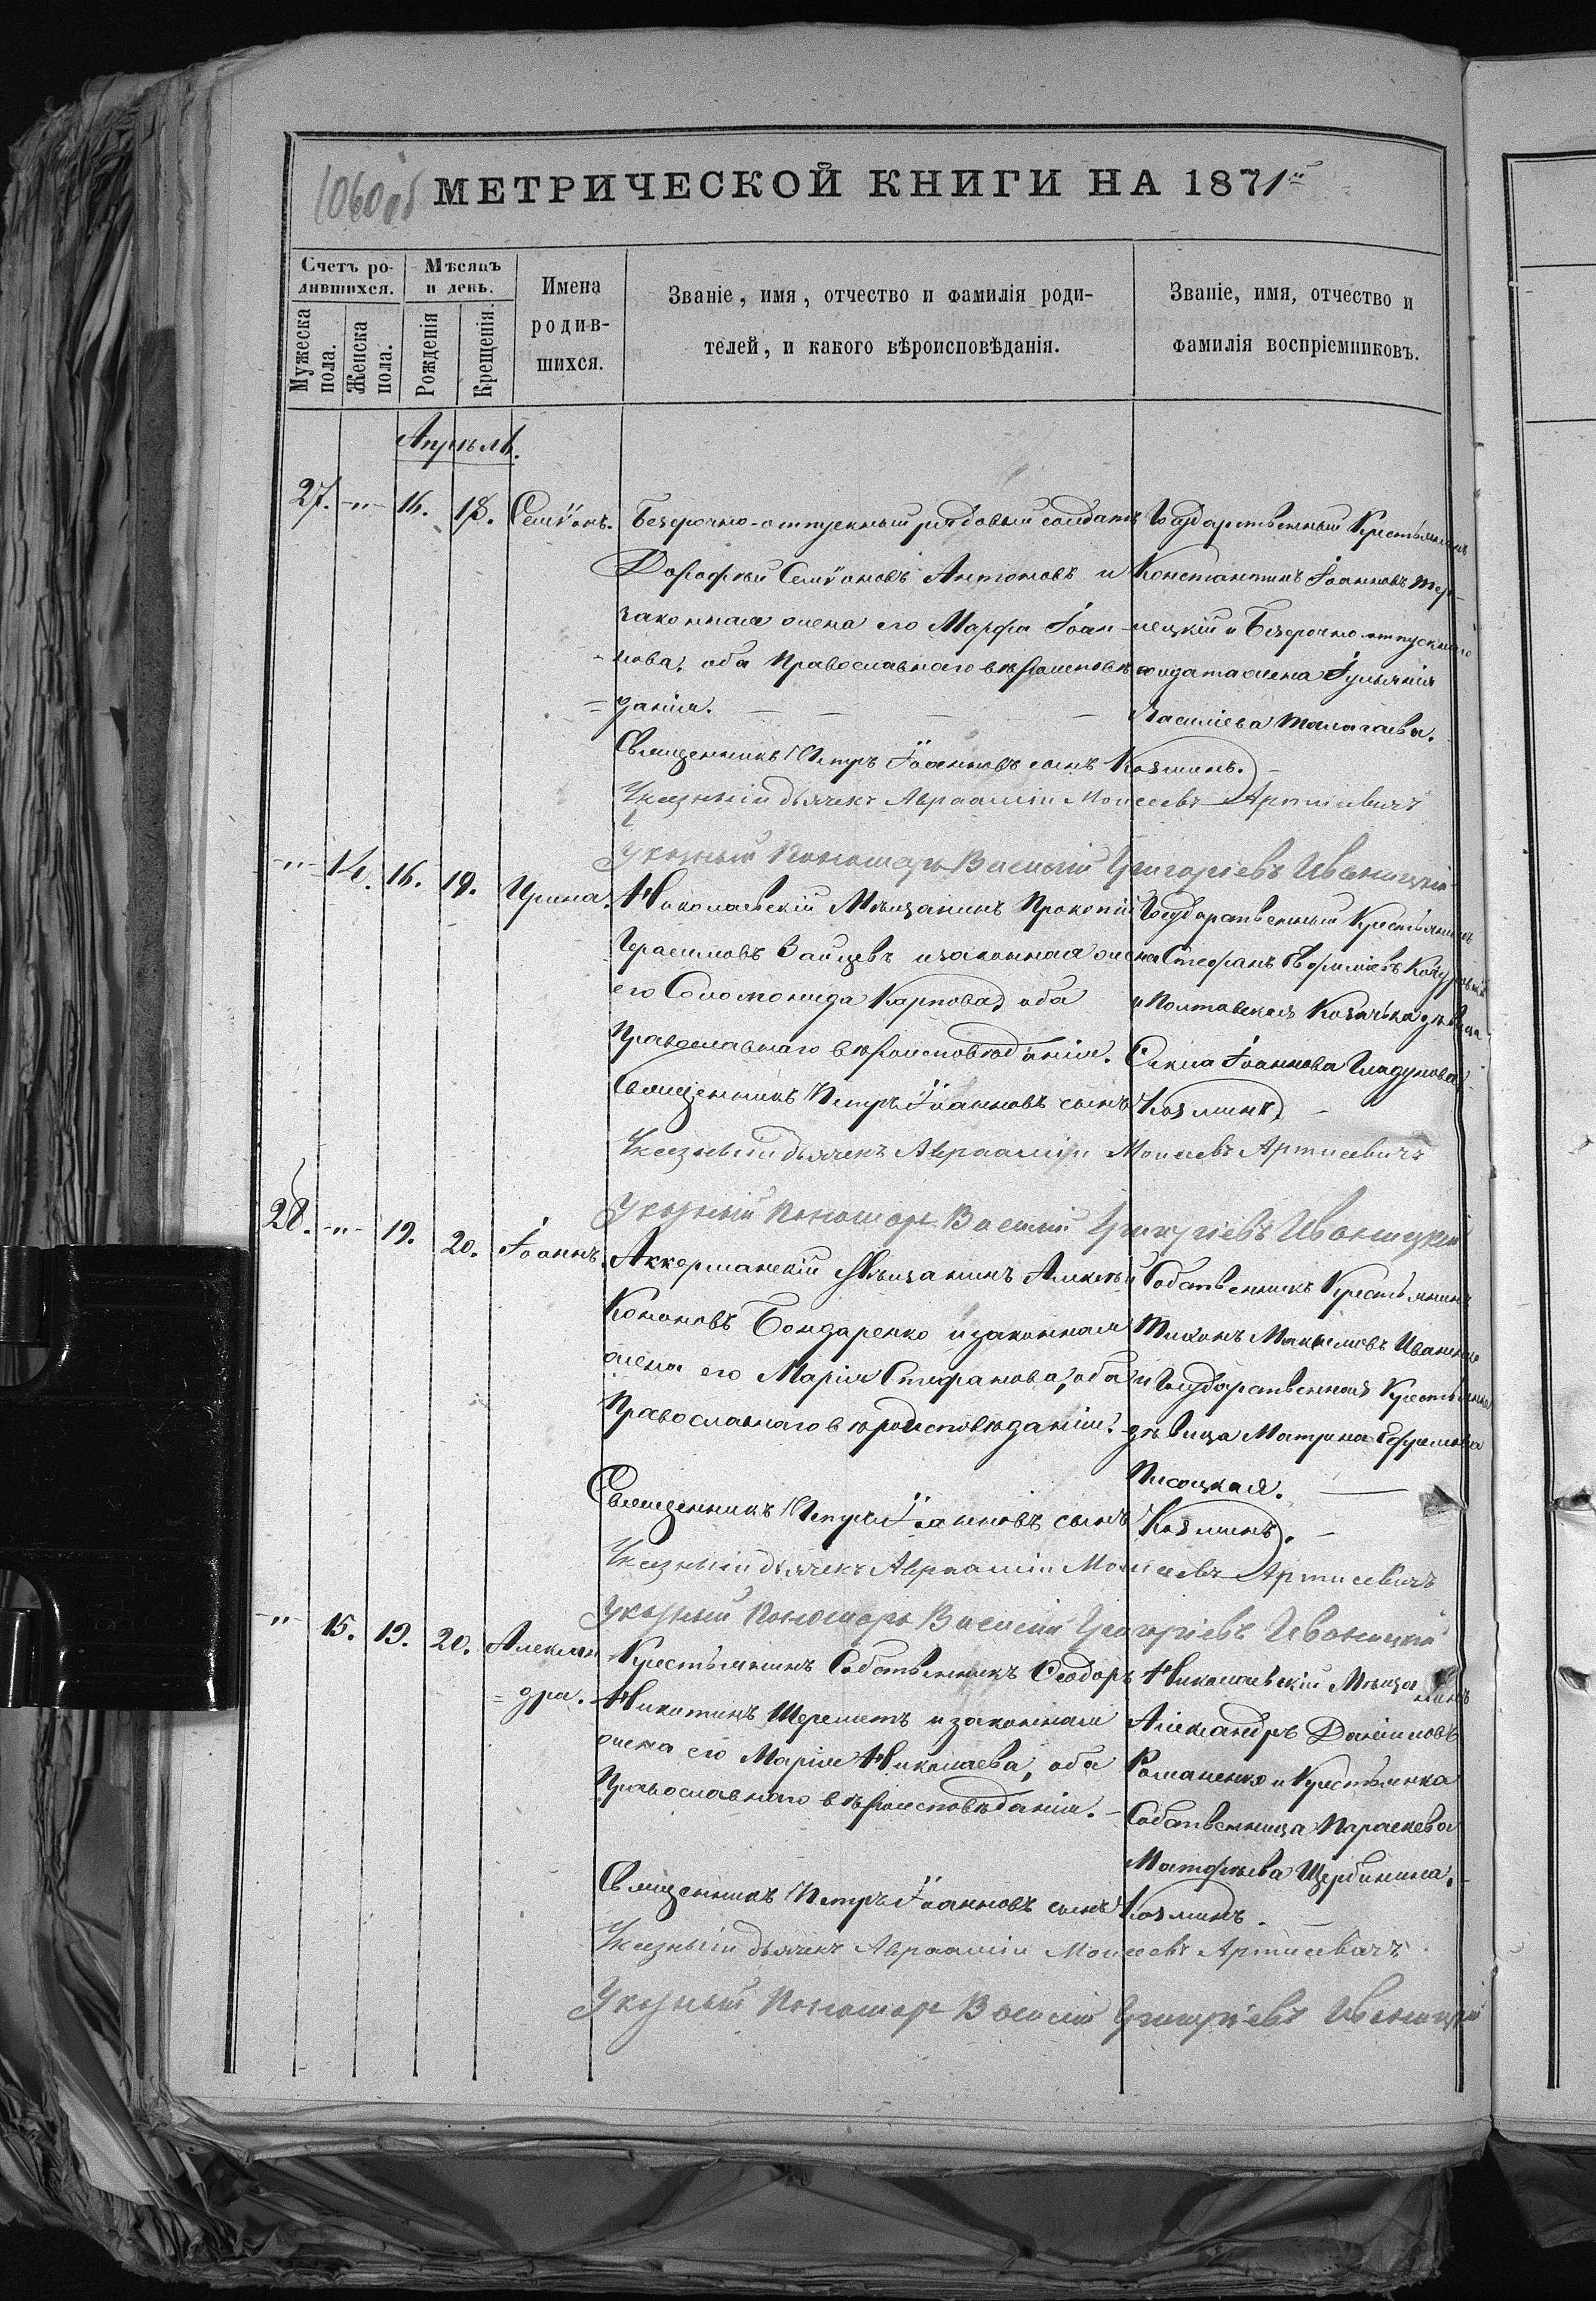 1060 об
МЕТРИЧЕСКОЙ КНИГИ НА 1871й
Счетъ ро-
дившихся.
Мужеска
пола.
Женска
пола.
Мѣсяцъ
и день.
Рожденія
Крещенія.
Имена
родив-
шихся.
Званіе, имя, отчество и фамилія роди-
телей, и какого вѣроисповѣданія.
Званіе, имя, отчество и
фамилія воспріемниковъ.
Апрѣль.
27. -"- 16. 18. Семѵонъ.
Безсрочно-отпускный рядовый солдатъ
Дорофей Семѵоновъ Антоновъ и
законная жена его Марфа Іоан-
-нова, оба Православнаго вѣроисповѣ-
=данія.
Государственный Крестьянинъ
Константинъ Іоанновъ Тер-
нецкій и Безсрочно отпускнаго
солдата жена Іульянія
Василіева Малагаева.
Священникъ Петръ Іоанновъ сынъ Козминъ.
Указный дьячекъ Авраамій Моисеевъ Артисевичъ
Указный Пономарь Василій Григоріевъ Иваницкій
-"- 14. 16. 19. Ирина.
Николаевскій Мѣщанинъ Прокопій
Герасимовъ Зайцевъ и законная жена
его Соломонида Карпова, оба
Православнаго вѣроисповѣданія.
Государственный Крестьянинъ
Стефанъ Ефиміевъ
и Полтавская Козачка дѣвица
Іоаннова Гладунова
Священникъ Петръ Іоанновъ сынъ Козминъ.
Указный дьячекъ Авраамій Моисеевъ Артисевичъ
Указный Пономарь Василій Григоріевъ Иваницкій
28. -"- 19. 20. Іоаннъ.
Аккерманскій Мѣщанинъ Алексѣй
Кононовъ Бондаренко и законная
жена его Марія Стефанова, оба
Православнаго вѣроисповѣданія.
Собственникъ Крестьянинъ
Тихонъ Максимовъ Иваненко
и Государственная Крестьянка
дѣвица Матрона Ефремова
Писоцкая.
Священникъ Петръ Іоанновъ сынъ Козминъ.
Указный дьячекъ Авраамій Моисеевъ Артисевичъ
Указный Пономарь Василій Григоріевъ Иваницкій
-"- 15. 19. 20. Алексан
=дра.
Крестьянинъ Собственникъ Ѳеодоръ
Никитинъ Шереметъ и законная
жена его Марія Николаева, оба
Православнаго вѣроисповѣданія.
Николаевскій Мѣщанинъ
Александръ Даніиловъ
Романенко и Крестьянка
Собственница Параскева
Матфѣева Щербинина.
Священникъ Петръ Іоанновъ сынъ Козминъ.
Указный дьячекъ Авраамій Моисеевъ Артисевичъ
Указный Пономарь Василій Григоріевъ Иваницкій